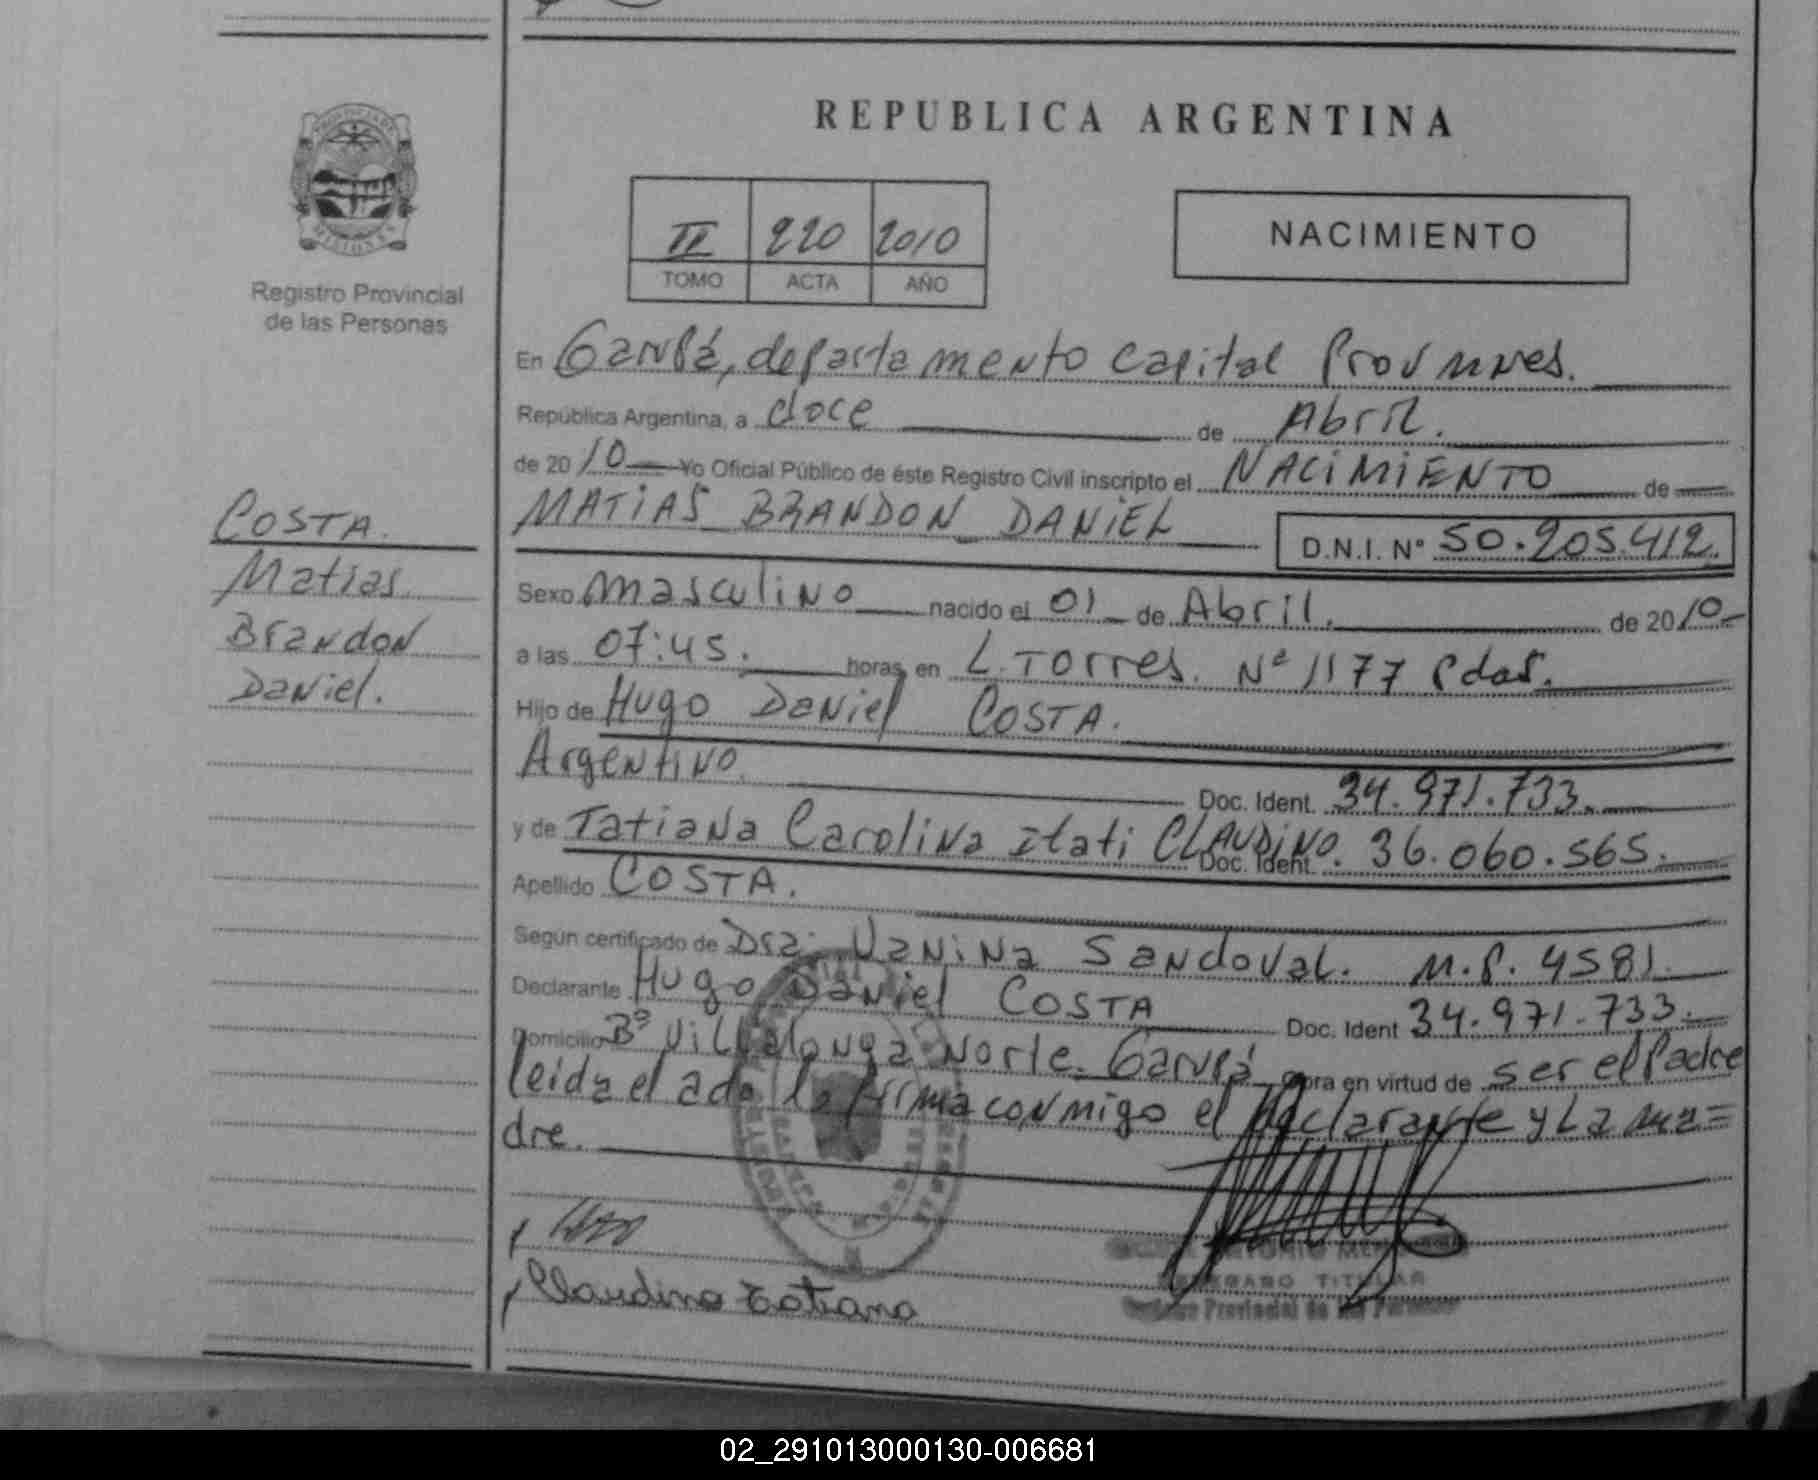 REPUBLICA ARGENTINA
PROVINCIA DE
MISIONES
Registro Provincial
de las Personas
II 220 2010
TOMO ACTA AÑO
NACIMIENTO
En Garupá, departamento Capital Prov mnes.
República Argentina, a doce de Abril.
de 20 10 Yo Oficial Público de éste Registro Civil inscripto el NACIMIENTO de
MATIAS BRANDON DANIEL D.N.I. Nº 50.205.412.
COSTA.
Matias
Brandon
Daniel.
Sexo masculino nacido el 01 de Abril. de 20 10
a las 07:45. horas, en L. Torres. Nº 1177 Pdas.
Hijo de Hugo Daniel COSTA.
Argentino. Doc. Ident. 34.971.733.
y de Tatiana Carolina Itati CLAUDINO. Doc. Ident. 36.060.565.
Apellido COSTA.
Según certificado de Dra: Vanina Sandoval. M.P. 4581.
Declarante Hugo Daniel COSTA Doc. Ident 34.971.733.
Domicilio Bº Villalonga Norte. Garupá obra en virtud de ser el Padre
leida el acta la firma conmigo el declarante y La ma=
dre.
Claudino Tatiana
TITULAR
Provincial de las
02_291013000130-006681